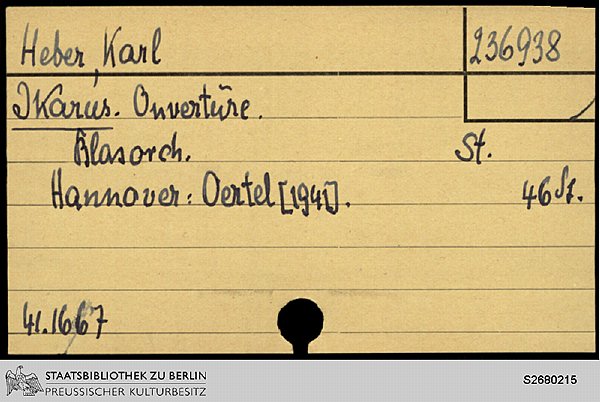 Heber, Karl
236938
Ikarus. Ouvertüre.
Blasorch. St.
Hannover: Oertel [1941]. 46 St.
41.1667
STAATSBIBLIOTHEK ZU BERLIN
PREUSSISCHER KULTURBESITZ
S2680215